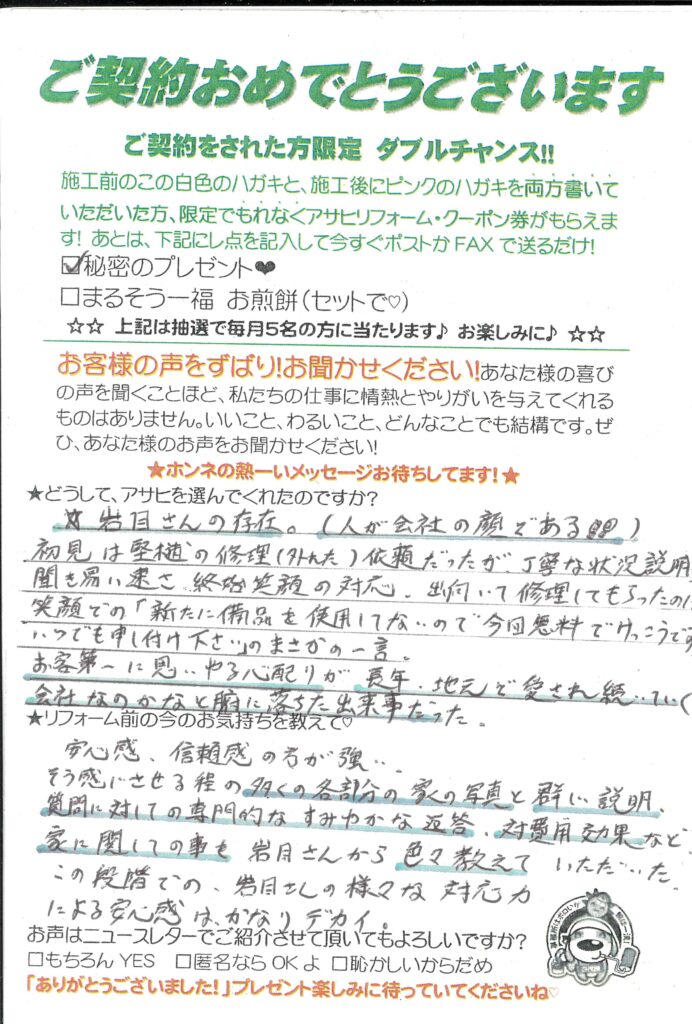 ご契約おめでとうございます
ご契約をされた方限定 ダブルチャンス!!
施工前のこの白色のハガキと、施工後にピンクのハガキを両方書いて
いただいた方、限定でもれなくアサヒリフォーム・クーポン券がもらえま
す! あとは、下記にレ点を記入して今すぐポストかFAXで送るだけ!
☑秘密のプレゼント❤
□まるそう一福 お煎餅(セットで♡)
☆☆ 上記は抽選で毎月5名の方に当たります♪ お楽しみに♪ ☆☆
お客様の声をずばり!お聞かせください!あなた様の喜び
の声を聞くことほど、私たちの仕事に情熱とやりがいを与えてくれる
ものはありません。いいこと、わるいこと、どんなことでも結構です。ぜ
ひ、あなた様のお声をお聞かせください!
★ホンネの熱ーいメッセージお待ちしてます!★
★どうして、アサヒを選んでくれたのですか?
☆岩目さんの存在。(人が会社の顔である!!)
初見は堅樋の修理(外れた)依頼だったが、丁寧な状況説明
聞き易い速さ、終始笑顔の対応、出向いて修理してもらったのに
笑顔での「新たに備品を使用してないので今回無料でけっこうです
いつでも申し付け下さい」のまさかの一言。
お客第一に思いやる心配りが長年、地元で愛され続いていく
会社なのかなと腑に落ちた出来事だった。
★リフォーム前の今のお気持ちを教えて♡
安心感、信頼感の方が強い。
そう感じさせる程の多くの各部分の家の写真と詳しい説明、
質問に対しての専門的なすみやかな返答、対費用効果など、
家に関しての事も岩目さんから色々教えていただいた。
この段階での、岩目さんの様々な対応力
による安心感は、かなりデカイ。
お声はニュースレターでご紹介させて頂いてもよろしいですか?
□もちろんYES □匿名ならOKよ □恥かしいからだめ
「ありがとうございました!」プレゼント楽しみに待っていてくださいね♡